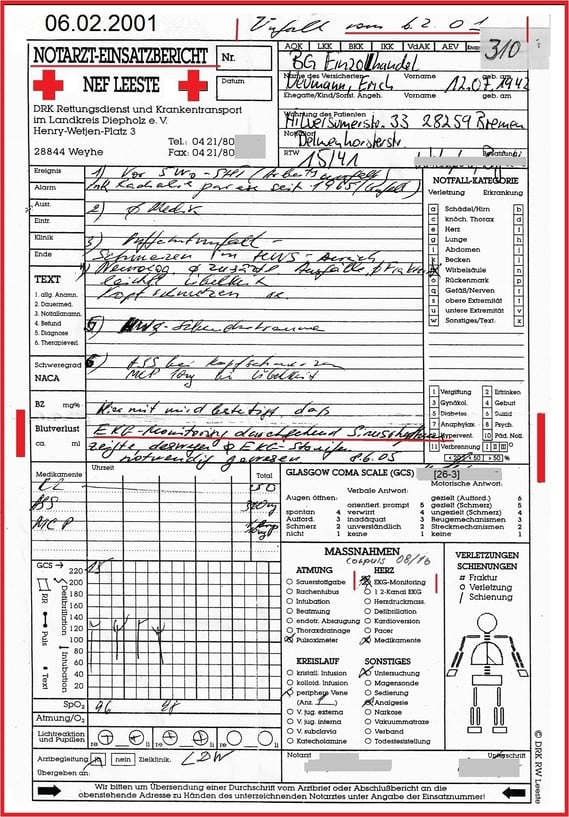 06.02.2001
Unfall vom 6.2.01
NOTARZT-EINSATZBERICHT
Nr.
AOK LKK BKK IKK VdAK AEV
310
NEF LEESTE
Datum
BG Einzelhandel
Name des Versicherten Vorname geb. am
Erich 12.07.1942
Ehegatte/Kind/Sonst. Angeh. Vorname geb. am
DRK Rettungsdienst und Krankentransport
im Landkreis Diepholz e. V.
Henry-Wetjen-Platz 3
Tel.: 04 21/80
28844 Weyhe
Fax: 04 21/80
Wohnung des Patienten
33 28259 Bremen
Notfallort
RTW
15/41
Besatzung
Ereignis
Alarm
Ausr.
Eintr.
Klinik
Ende
1) Vor
seit 1965 (Unfall)
2) ø Medik
3)
Schmerzen im HWS-Bereich
4) Neurolog. ø
leichte Übelkeit
Kopfschmerzen
TEXT
1. allg. Anamn.
2. Dauermed.
3. Notfallanamn.
4. Befund
5. Diagnose
6. Therapieverl.
5) HWS-Schleudertrauma
Schweregrad
NACA
6) ASS bei Kopfschmerzen
MCP 10mg bei Übelkeit
BZ mg%
Hiermit wird bestätigt, daß
Blutverlust
ca. ml
EKG-Monitoring durchgehend Sinusrhythmus
zeigte deswegen ø EKG-Streifen
notwendig gewesen 8.6.05
NOTFALL-KATEGORIE
Verletzung Erkrankung
a Schädel/Hirn b
c knöch. Thorax d
e Herz f
g Lunge h
i Abdomen j
k Becken l
Wirbelsäule n
o Rückenmark p
q Gefäß/Nerven r
s obere Extremität t
u untere Extremität v
w Sonstiges/Text x
1 Vergiftung 2 Ertrinken
3 Gynäkol. 4 Geburt
5 Diabetes. 6 Suizid
7 Anaphylax. 8 Psych.
9 Hypervent. 10 Päd. Notf.
11 Verbrennung I II III °
Medikamente
Uhrzeit
Total
ASS
MCP
GLASGOW COMA SCALE (GCS) [26-3]
Verbale Antwort: Motorische Antwort:
Augen öffnen: orientiert. prompt 5 gezielt (Aufford.) 6
spontan 4 verwirrt 4 gezielt (Schmerz) 5
Aufford. 3 inadäquat 3 ungezielt (Schmerz) 4
Schmerz 2 unverständlich 2 Beugemechanismen 3
nicht 1 keine 1 Streckmechanismen 2
keine 1
GCS
15
220
200
180
160
140
120
100
80
60
40
20
RR
Puls
Text
Defibrillation
Intubation
SpO₂ 96 98
Atmung/O₂
Lichtreaktion
und Pupillen
re li re li re li
MASSNAHMEN
corpuls 08/16
ATMUNG
Sauerstoffgabe
Rachentubus
Intubation
Beatmung
endotr. Absaugung
Thoraxdrainage
Pulsoximeter
HERZ
EKG-Monitoring
12-Kanal EKG
Herzdruckmass.
Defibrillation
Kardioversion
Pacer
Medikamente
KREISLAUF
kristall. Infusion
kolloid. Infusion
periphere Vene
(Anz. 1)
V. jug. externa
V. jug. interna
V. subclavia
Katecholamine
SONSTIGES
Untersuchung
Magensonde
Sedierung
Analgesie
Narkose
Vakuummatraze
Verband
Todesfeststellung
VERLETZUNGEN
SCHIENUNGEN
# Fraktur
○ Verletzung
/ Schienung
Arztbegleitung ja nein Zielklinik: LDW
Übergeben an:
Notarzt
Unterschrift
Wir bitten um Übersendung einer Durchschrift vom Arztbrief oder Abschlußbericht an die
obenstehende Adresse zu Händen des unterzeichnenden Notarztes unter Angabe der Einsatznummer!
© DRK RW Leeste